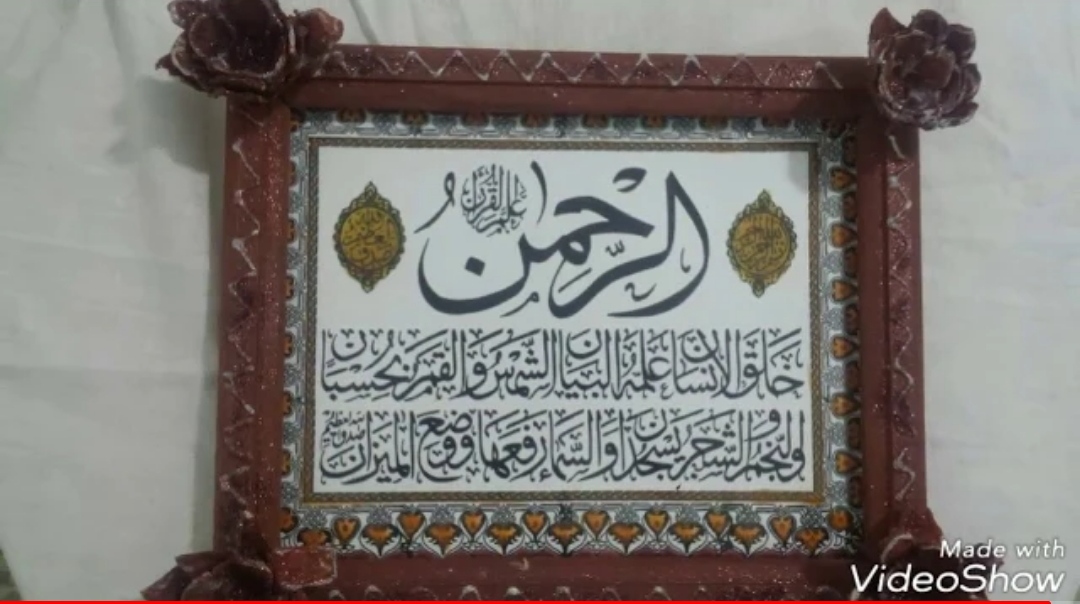 الرحمن
علم القرآن
خلق الانسان علمه البيان الشمس والقمر بحسبان
والنجم والشجر يسجدان والسماء رفعها ووضع الميزان
صدق الله العظيم
Made with
VideoShow